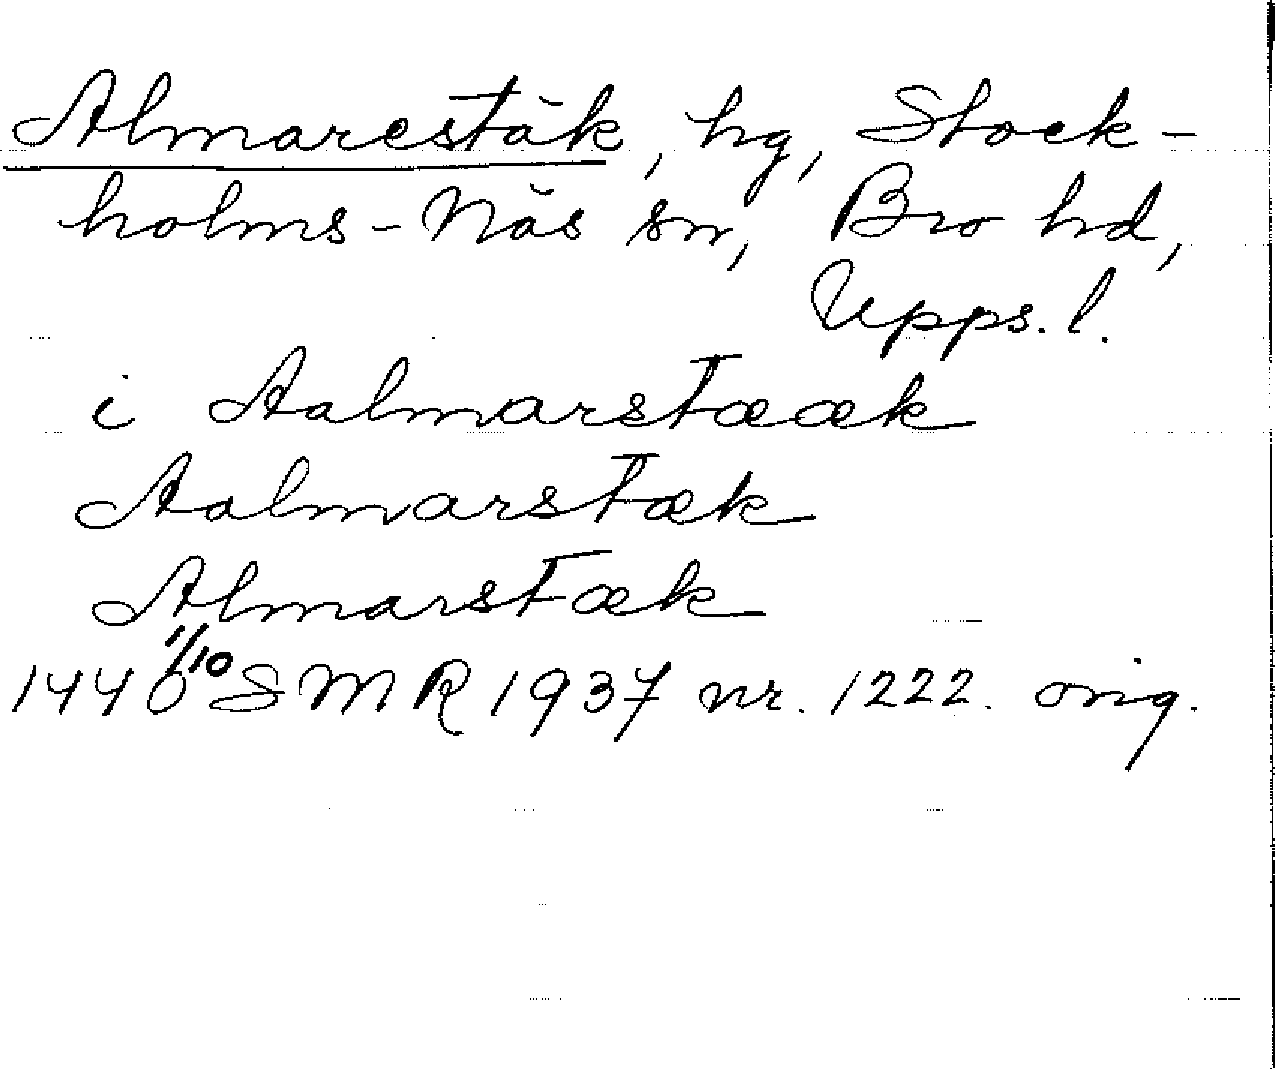 Almarestäk, hg, Stock-
holms-Näs sn, Bro hd,
Upps. l.
i Aalmarstææk
Aalmarstæk
Almarstæk
1440 1/10 SMR 1937 nr. 1222. orig.